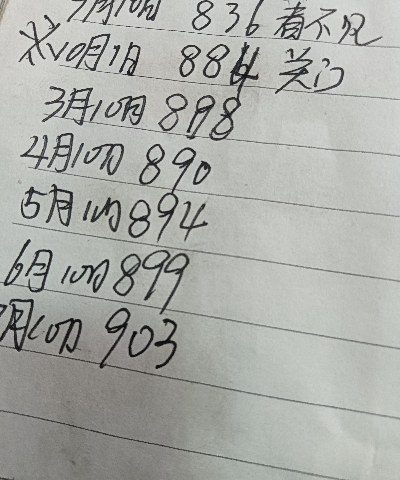 7月10日 836 看不见
10月1日 884 关门
3月10日 898
4月10日 890
5月10日 894
6月10日 899
月10日 903